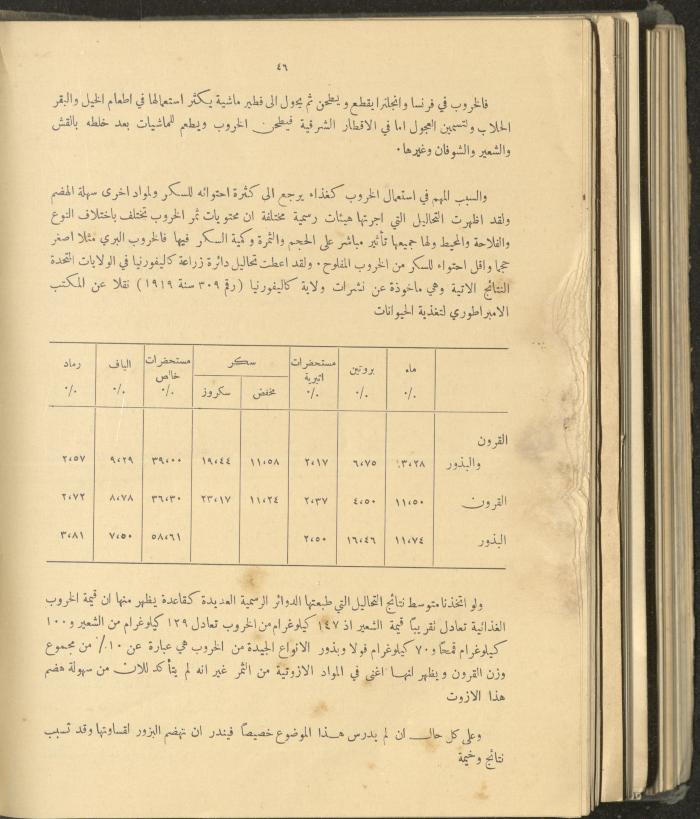 ٤٦
فالخروب في فرنسا وانجلترا يقطع ويطحن ثم يحول الى فطير ماشية يكثر استعمالها في اطعام الخيل والبقر
الحلاب ولتسمين العجول اما في الاقطار الشرقية فيطحن الخروب ويطعم للماشيات بعد خلطه بالقش
والشعير والشوفان وغيرها.
والسبب المهم في استعمال الخروب كغذاء يرجع الى كثرة احتوائه للسكر ولمواد اخرى سهلة الهضم
ولقد اظهرت التحاليل التي اجرتها هيئات رسمية مختلفة ان محتويات ثمر الخروب تختلف باختلاف النوع
والفلاحة والمحيط ولها جميعها تأثير مباشر على الحجم والثمرة وكمية السكر فيها فالخروب البري مثلا اصغر
حجما واقل احتواء للسكر من الخروب المفلوح. ولقد اعطت تحاليل دائرة زراعة كاليفورنيا في الولايات المتحدة
النتائج الاتية وهي ماخوذة عن نشرات ولاية كاليفورنيا (رقم ٣٠٩ سنة ١٩١٩) نقلا عن المكتب
الامبراطوري لتغذية الحيوانات
ماء بروتين مستحضرات اتيرية سكر مستحضرات خالص الياف رماد
٪ ٪ ٪ مخفض سكروز ٪ ٪ ٪
القرون
والبذور ٣،٢٨ ٦،٧٥ ٢،١٧ ١١،٥٨ ١٩،٤٤ ٣٩،٠٠ ٩،٢٩ ٢،٥٧
القرون ١١،٥٠ ٤،٥٠ ٢،٣٧ ١١،٢٤ ٢٣،١٧ ٣٦،٣٠ ٨،٧٨ ٢،٧٢
البذور ١١،٧٤ ١٦،٤٦ ٢،٥٠ ٥٨،٦١ ٧،٥٠ ٣،٨١
ولو اتخذنا متوسط نتائج التحاليل التي طبعتها الدوائر الرسمية العديدة كقاعدة يظهر منها ان قيمة الخروب
الغذائية تعادل تقريبًا قيمة الشعير اذ ١٤٧ كيلوغرام من الخروب تعادل ١٢٩ كيلوغرام من الشعير و١٠٠
كيلوغرام قمحًا و٧٠ كيلوغرام فولا وبذور الانواع الجيدة من الخروب هي عبارة عن ١٠٪ من مجموع
وزن القرون ويظهر انها اغنى في المواد الازوتية من الثمر غير انه لم يتأكد للان من سهولة هضم
هذا الازوت
وعلى كل حال ان لم يدرس هذا الموضوع خصيصًا فيندر ان تهضم البزور لقساوتها وقد تسبب
نتائج وخيمة